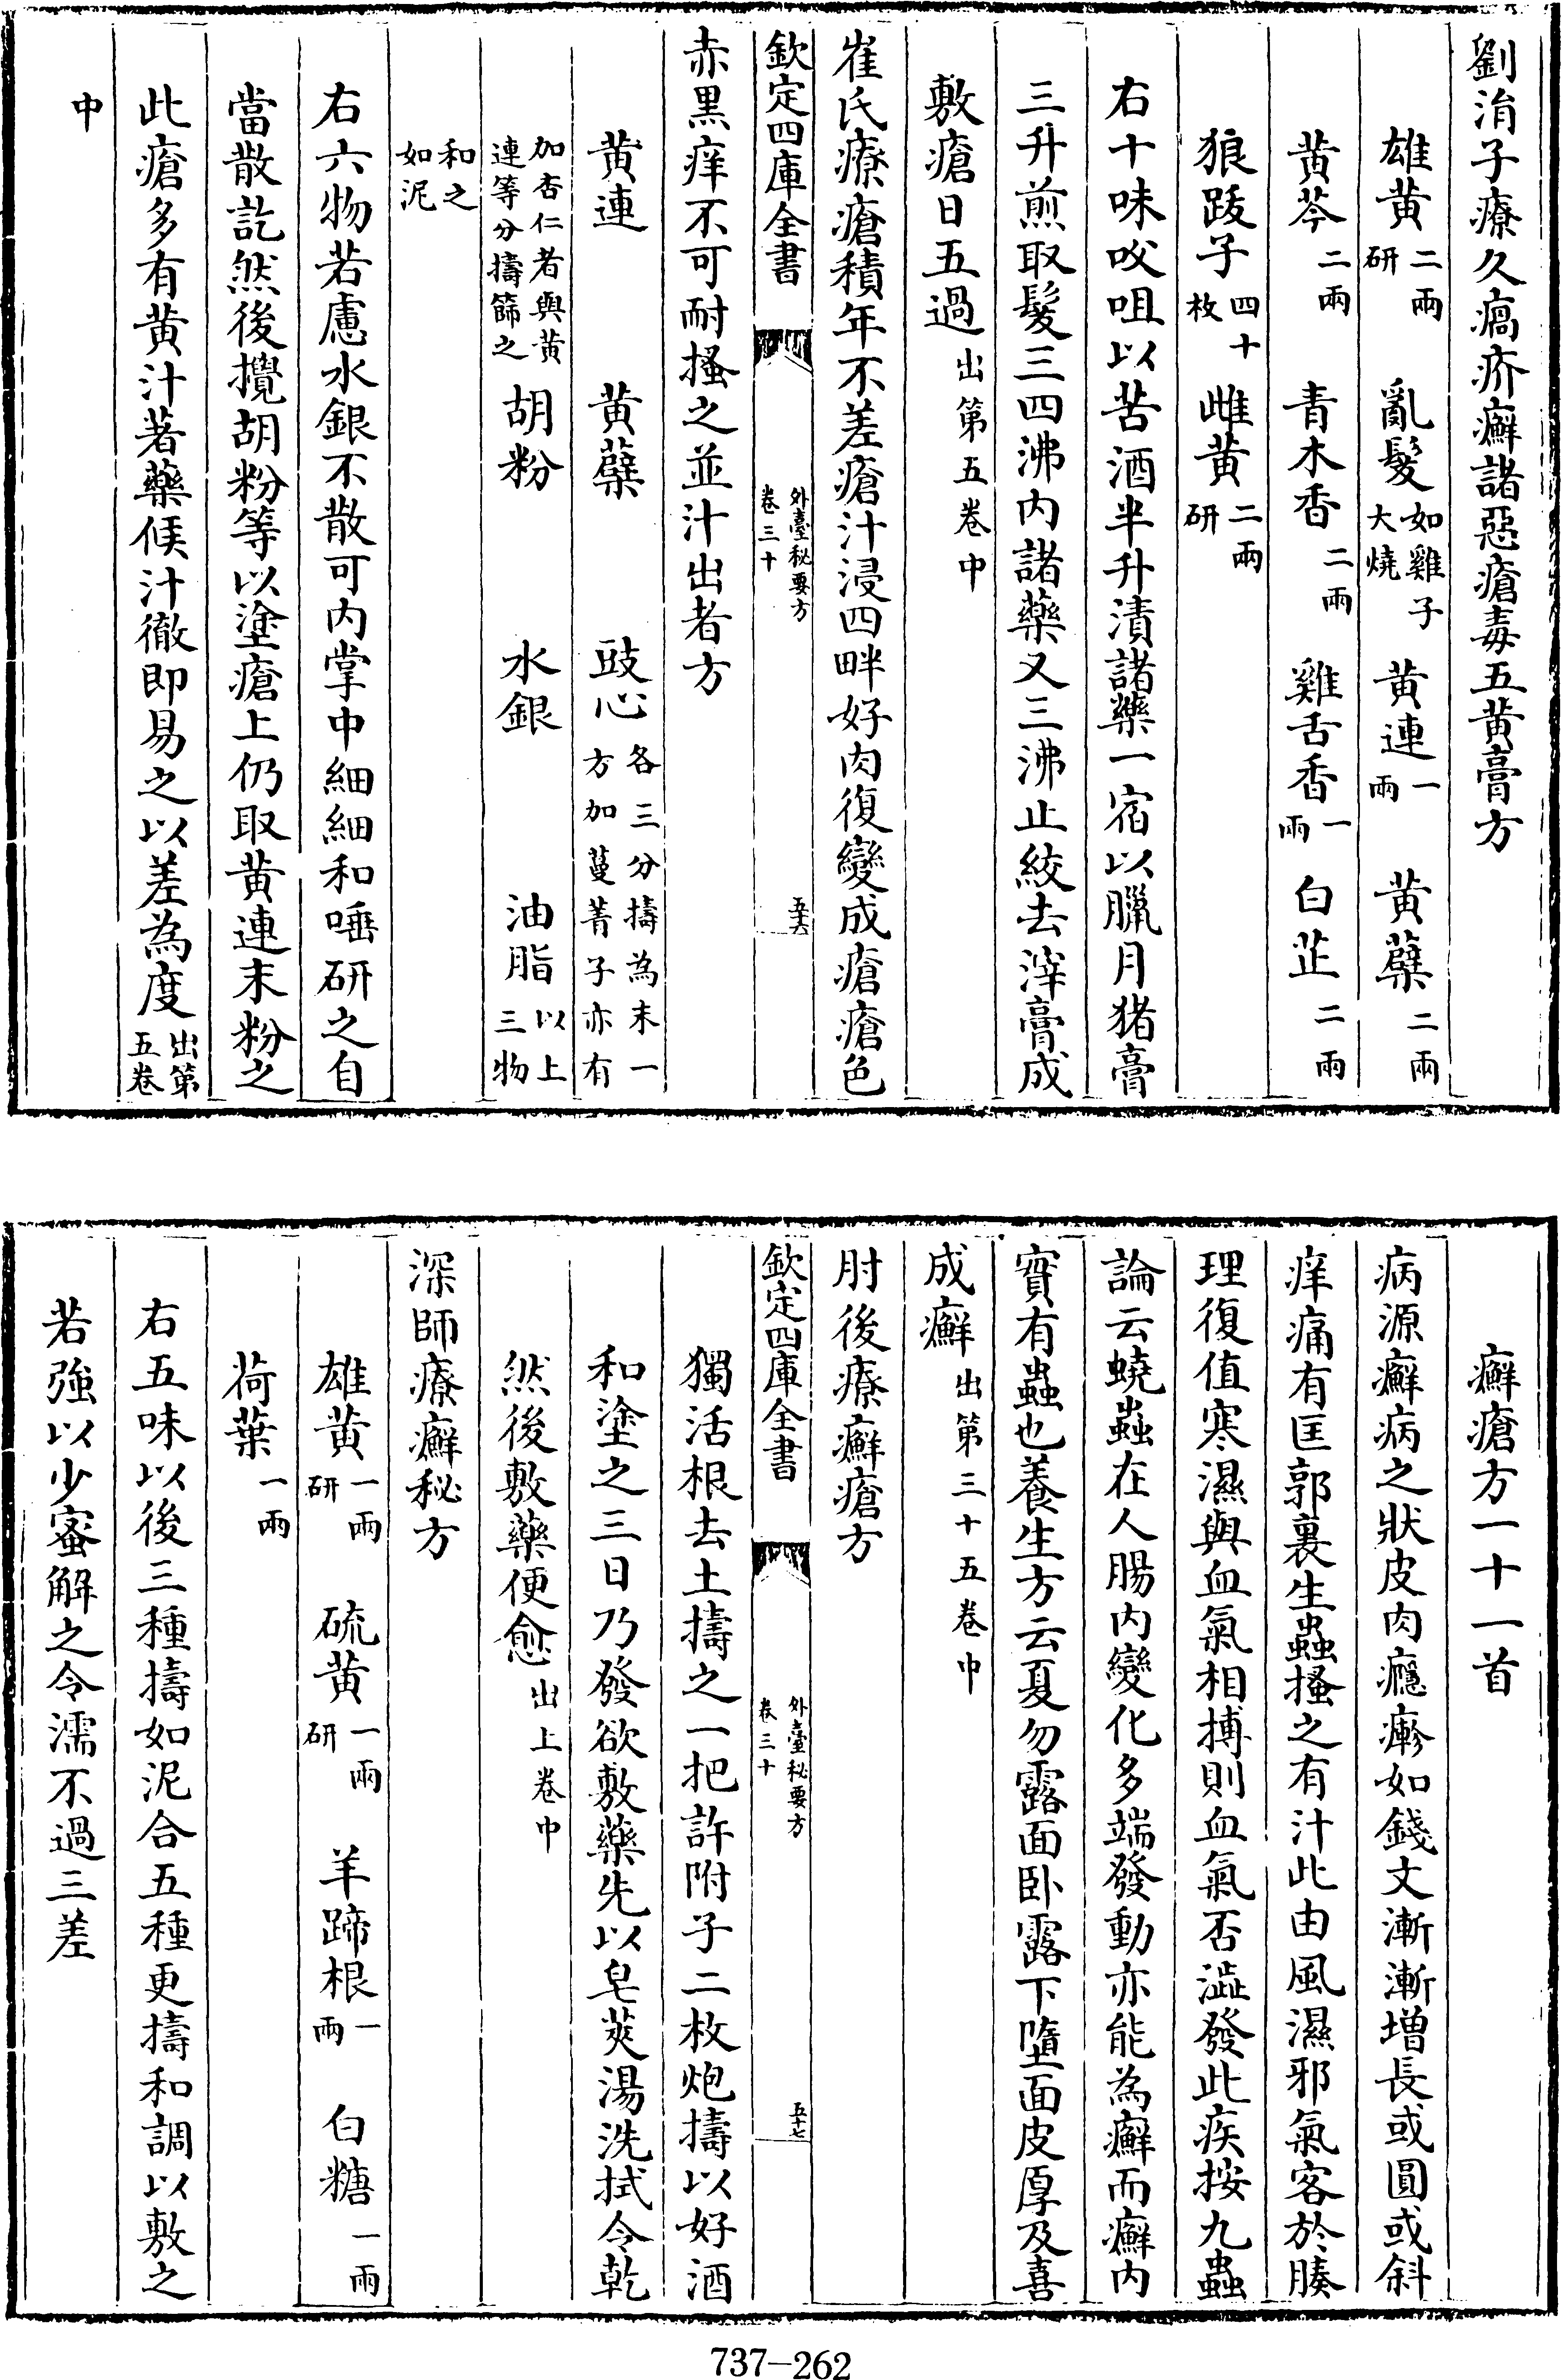 劉涓子療久瘑疥癬諸惡瘡毒五黄膏方
雄黄二兩研 亂髮如雞子大燒 黄連一兩 黄蘗二兩
黄芩二兩 青木香二兩 雞舌香一兩 白芷二兩
狼跋子四十枚 雌黄二兩研
右十味㕮咀以苦酒半升漬諸藥一宿以臘月猪膏
三升煎取髮三四沸内諸藥又三沸止絞去滓膏成
敷瘡日五過出第五卷中
崔氏療瘡積年不差瘡汁浸四畔好肉復變成瘡瘡色
欽定四庫全書 外臺秘要方卷三十 五十六
赤黒痒不可耐搔之並汁出者方
黄連 黄蘗 豉心各三分擣為末一方加蔓菁子亦有
加杏仁者與黄連等分擣篩之 胡粉 水銀 油脂以上三物
和之如泥
右六物若慮水銀不散可内掌中細細和唾研之自
當散訖然後攪胡粉等以塗瘡上仍取黄連末粉之
此瘡多有黄汁著藥候汁徹即易之以差為度出第五卷
中
癬瘡方一十一首
病源癬病之狀皮肉癮瘮如錢文漸漸増長或圓或斜
痒痛有匡郭裏生蟲搔之有汁此由風濕邪氣客於腠
理復值寒濕與血氣相搏則血氣否澁發此疾按九蟲
論云蟯蟲在人腸内變化多端發動亦能為癬而癬内
實有蟲也養生方云夏勿露面卧露下墮面皮厚及喜
成癬出第三十五卷中
肘後療癬瘡方
欽定四庫全書 外臺秘要方卷三十 五十七
獨活根去土擣之一把許附子二枚炮擣以好酒
和塗之三日乃發欲敷藥先以皂莢湯洗拭令乾
然後敷藥便愈出上卷中
深師療癬秘方
雄黄一兩研 硫黄一兩研 羊蹄根一兩 白糖一兩
荷葉一兩
右五味以後三種擣如泥合五種更擣和調以敷之
若強以少蜜解之令濡不過三差
737-262